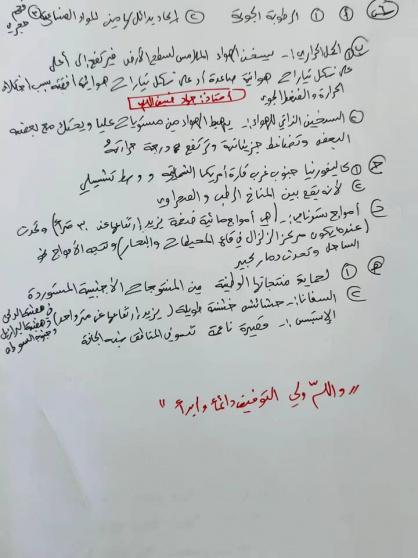 س٦ ٩ ① الرطوبة الجوية ② ايجاد بدائل كيمياوية للمواد الصناعية ③ فحم حجري
ب) ① الحمل الحراري:- يسخن الهواء الملامس لسطح الأرض فيرتفع الى أعلى
على شكل تيارات هوائية صاعدة أو على شكل تيارات هوائية أفقية بسبب اختلاف
الحرارة والضغط الجوي
② التسخين الذاتي للهواء:- يهبط الهواء من مستويات عليا ويحتك مع بعضه
البعض وتتضاغط جزيئاته وترتفع درجة حرارته
ج) ① كاليفورنيا جنوب غرب قارة أمريكا الشمالية ووسط تشيلي
② لأنه يقع بين المناخ الرطب والصحراوي
د) أمواج تسونامي:- هي أمواج مائية ضخمة يزيد ارتفاعها عن ٣٠ متراً وتحدث
عندما يكون مركز الزلزال في قاع المحيطات والبحار وتتجه الأمواج نحو
الساحل وتحدث دمار كبير
هـ) ① لحماية منتجاتها الوطنية من المنتوجات الأجنبية المستوردة
② السفانا:- حشائش خشنة طويلة يزيد ارتفاعها عن متر واحد
الاستبس:- قصيرة ناعمة تنمو في المناطق شبه الجافة
"والله ولي التوفيق دائماً وابداً"